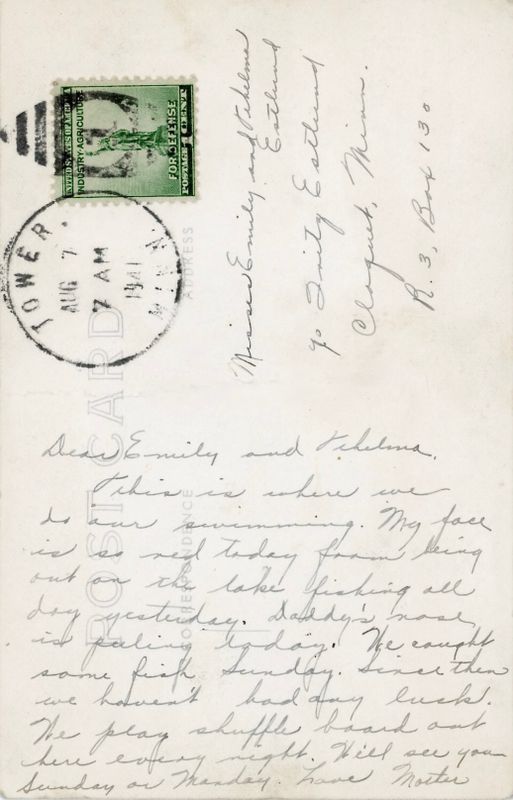 UNITED STATES OF AMERICA
INDUSTRY-AGRICULTURE
FOR DEFENSE
POSTAGE 1 CENT
TOWER.
AUG 7
7 AM
1941
MINN.
POST CARD
CORRESPONDENCE
ADDRESS
Misses Emily and Thelma
Estlund
c/o Fritz Estlund
Cloquet, Minn.
R. 3, Box 130
Dear Emily and Thelma,
This is where we
do our swimming. My face
is so red today from being
out on the lake fishing all
day yesterday. Daddy's nose
is peeling today. We caught
some fish Sunday. Since then
we haven't had any luck.
We play shuffle board out
here every night. Will see you
Sunday or Monday. Love Mother